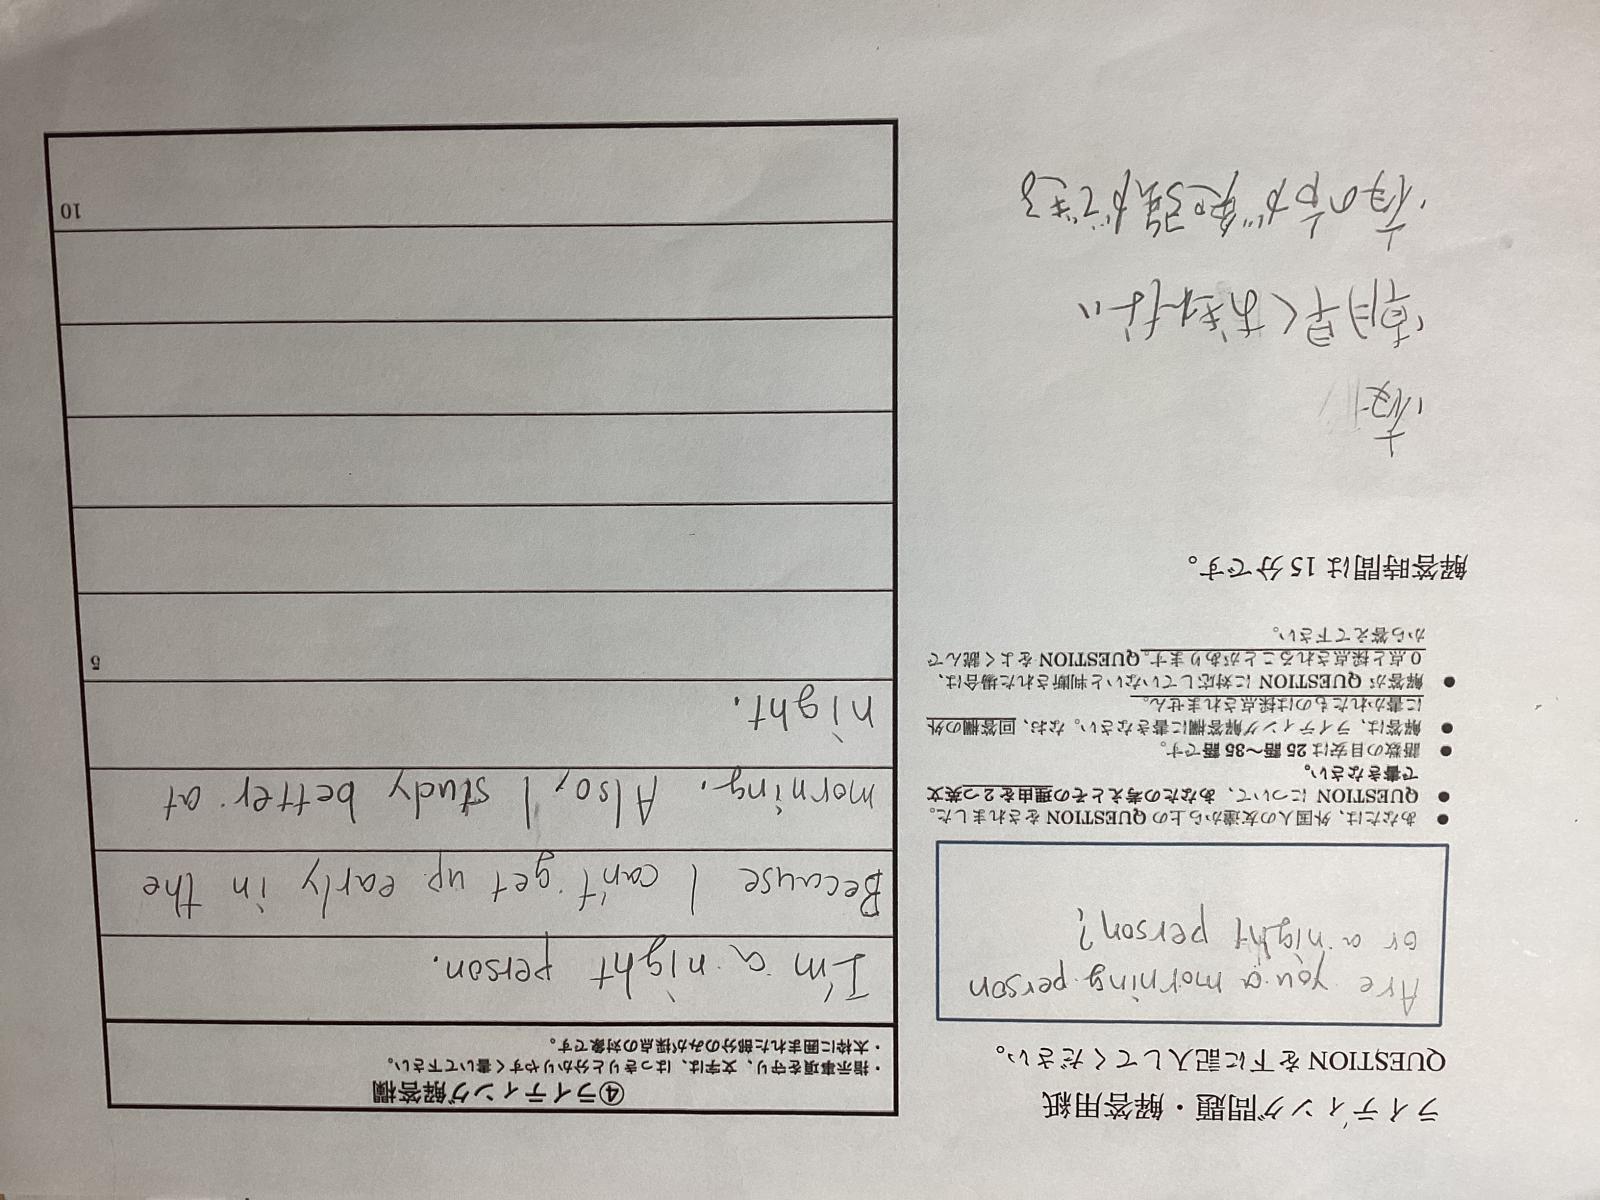 ライティング問題・解答用紙
QUESTION を下に記入してください。
Are you a morning person
or a night person?
● あなたは、外国人の友達から上の QUESTION をされました。
● QUESTION について、あなたの考えとその理由を2つ英文
で書きなさい。
● 語数の目安は 25 語～35 語です。
● 解答は、ライティング解答欄に書きなさい。なお、回答欄の外
に書かれたものは採点されません。
● 解答が QUESTION に対応していないと判断された場合は、
0点と採点されることがあります。QUESTION をよく読んで
から答えて下さい。
解答時間は 15 分です。
夜
朝早くおきれない
夜の方が勉強ができる
④ライティング解答欄
・指示事項を守り、文字は、はっきりと分かりやすく書いて下さい。
・太枠に囲まれた部分のみが採点の対象です。
I'm a night person.
Because I can't get up early in the
morning. Also, I study better at
night.
5
10